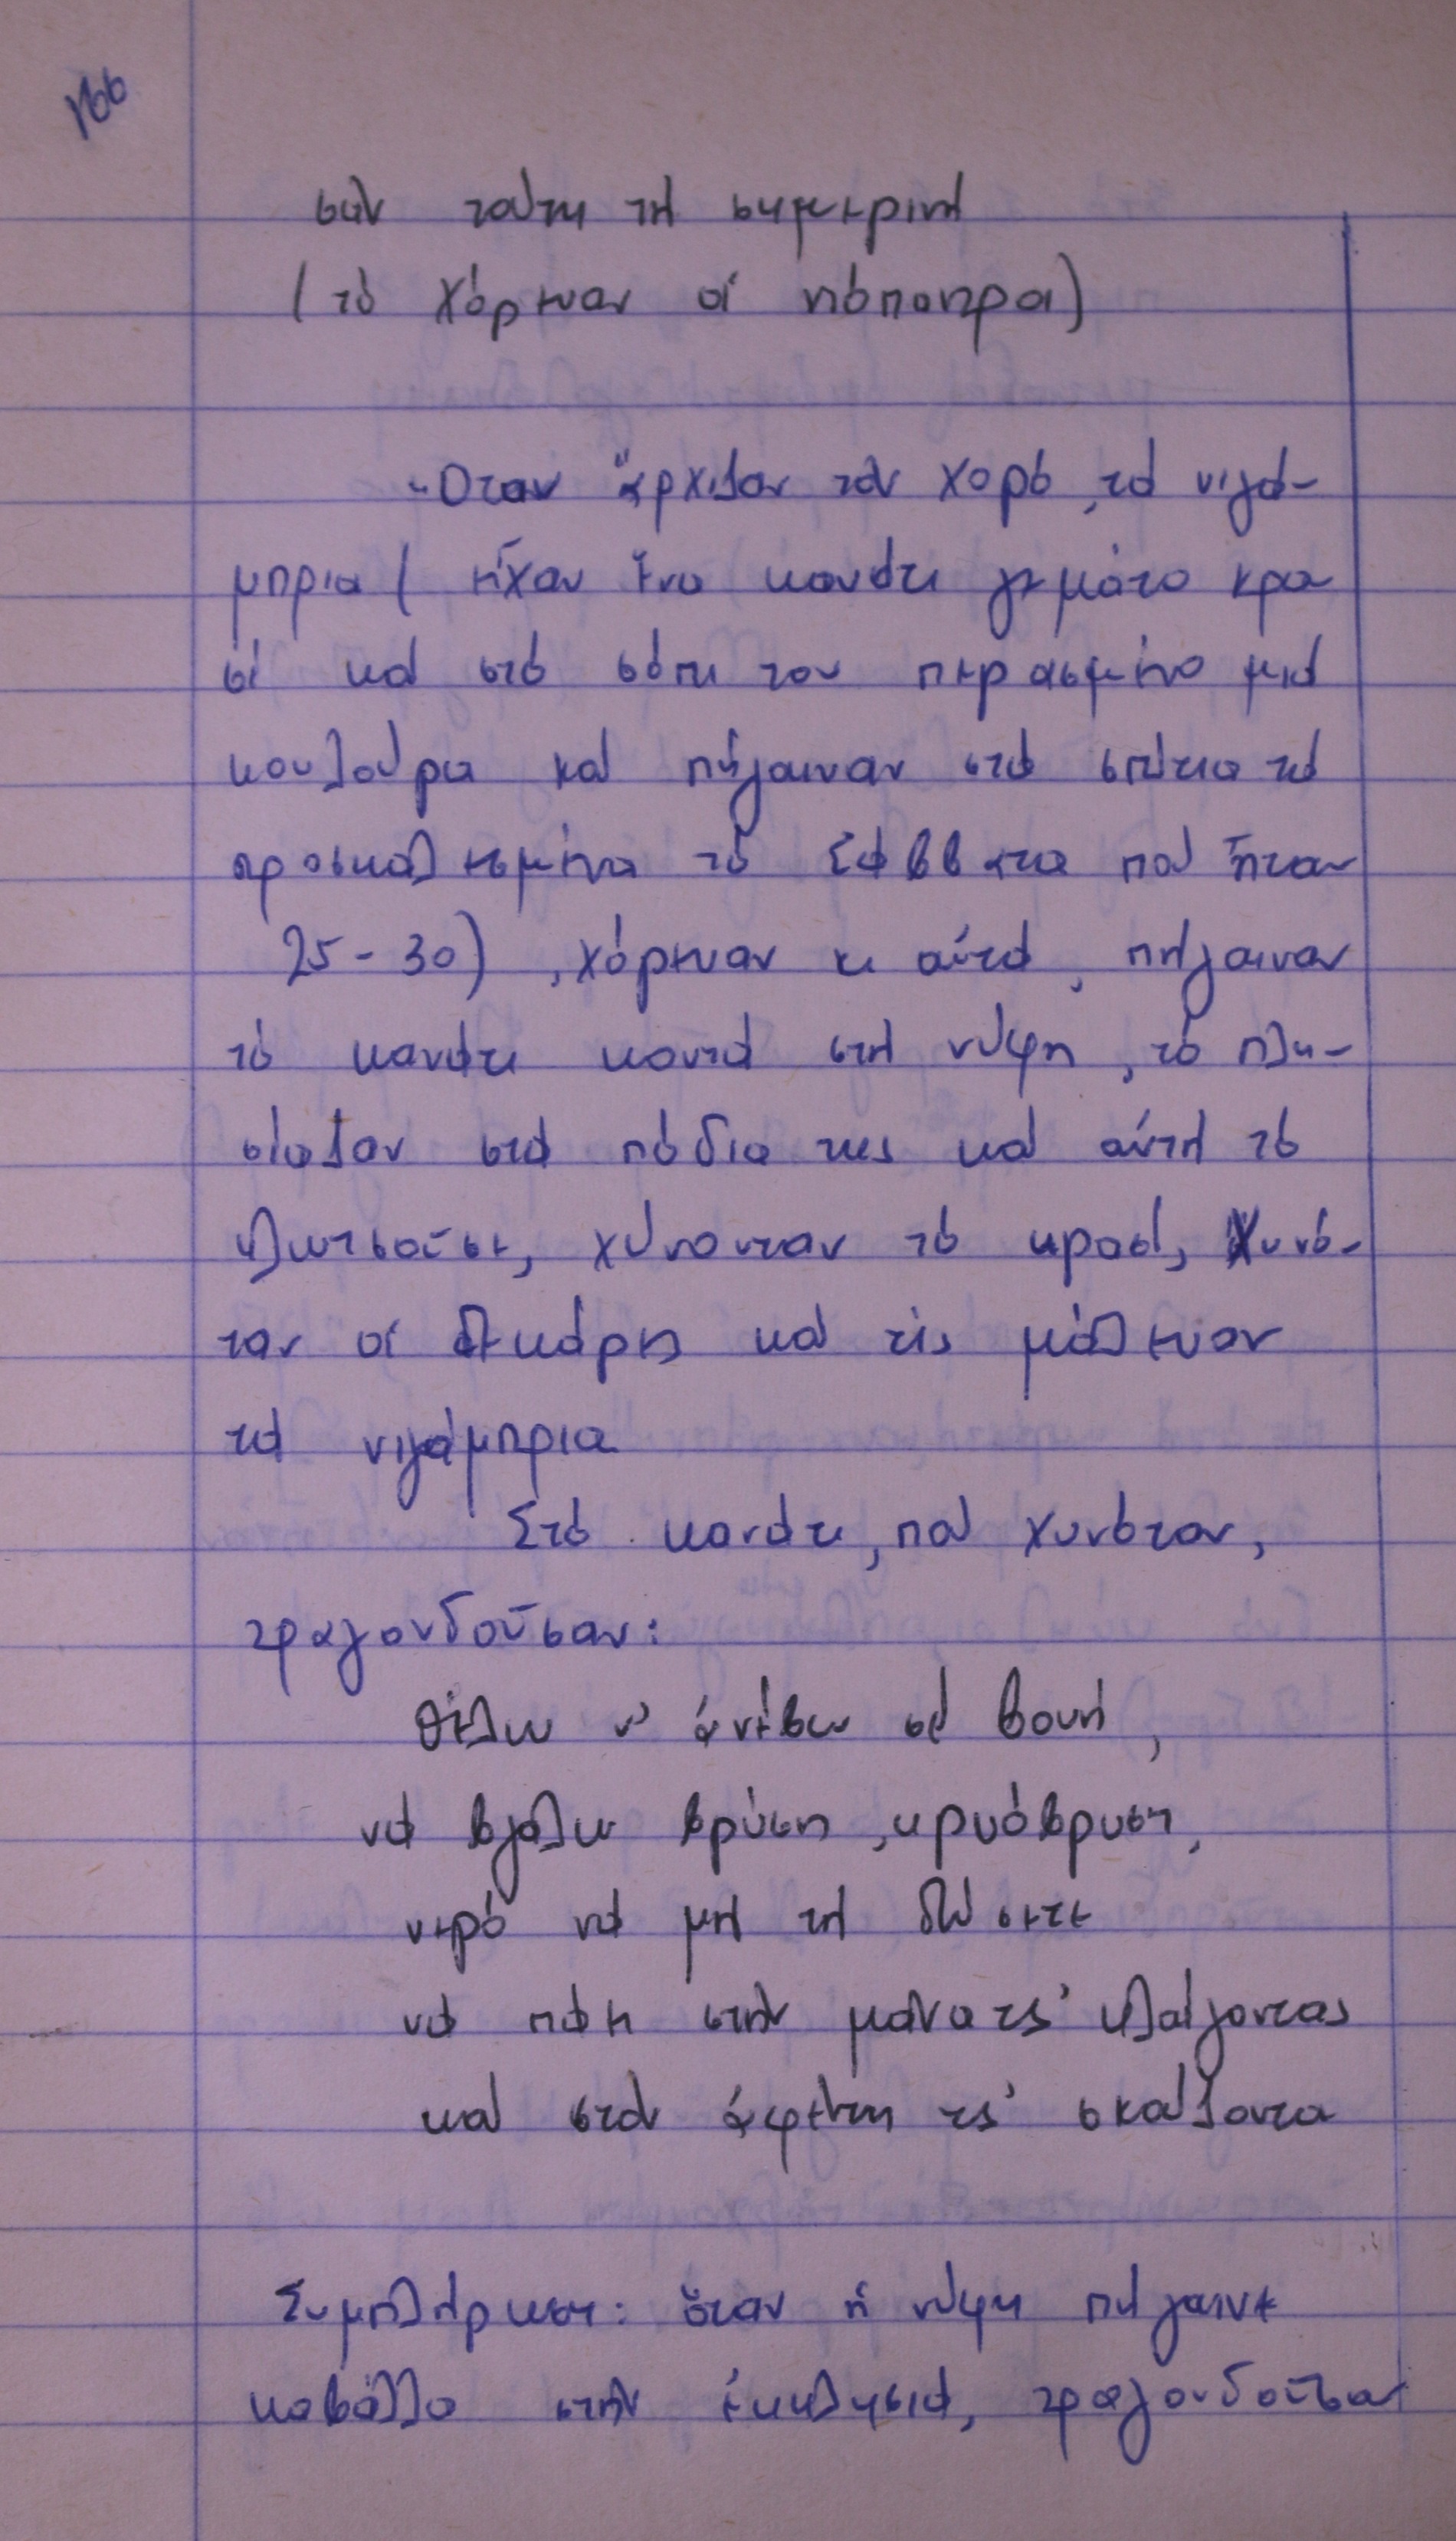 166
σάν τούτη τή σημερινή
(τό χόρευαν οἱ νιόπαντροι)
-Ὅταν ἄρχιζαν τόν χορό, τά νιγά-
μπρια ( εἶχαν ἕνα κανάτι γεμάτο κρα
σί καί στό στόμα του περασμένο μιά
κουλούρα καί πήγαιναν στά σπίτια τά
προσκαλεσμένα τό Σάββατο πού ἦταν
25-30), χόρευαν κι αὐτά, πήγαιναν
τό κανάτι κοντά στή νύφη, τό πλη-
σίαζαν στά πόδια της καί αὐτή τό
κλωτσοῦσε, χύνονταν τό κρασί, χυνό-
ταν οἱ δεκάρες καί τίς μάζευαν
τά νιγάμπρια
Στό κανάτι, πού χυνόταν,
τραγουδοῦσαν:
Θέλω ν' ἀνέβω σέ βουνή,
νά βγάλω βρύση, κρυόβρυση,
νερό νά μή τή δώσετε
νά πάει στήν μάνα τς' κλαίγοντας
καί στόν ἀφέντη τς' σκούζοντα
Συμπλήρωση: ὅταν ἡ νύφη πήγαινε
καβάλλα στήν ἐκκλησιά, τραγουδοῦσαν